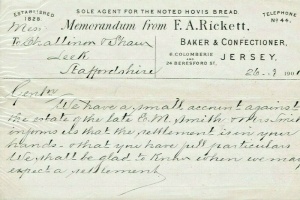 ESTABLISHED 1826
SOLE AGENT FOR THE NOTED HOVIS BREAD.
TELEPHONE No 44.
Memorandum from F. A. Rickett,
BAKER & CONFECTIONER,
8 COLOMBERIE AND 24 BERESFORD ST.
JERSEY.
Mess
Challinor & Shaw
Leek
Staffordshire
26-3 190
Gents
We have a small account against
the estate of the late E. M. Smith & Mrs Smith
informs us that the settlement is in your
hands & that you have full particulars
We shall be glad to know when we may
expect a settlement